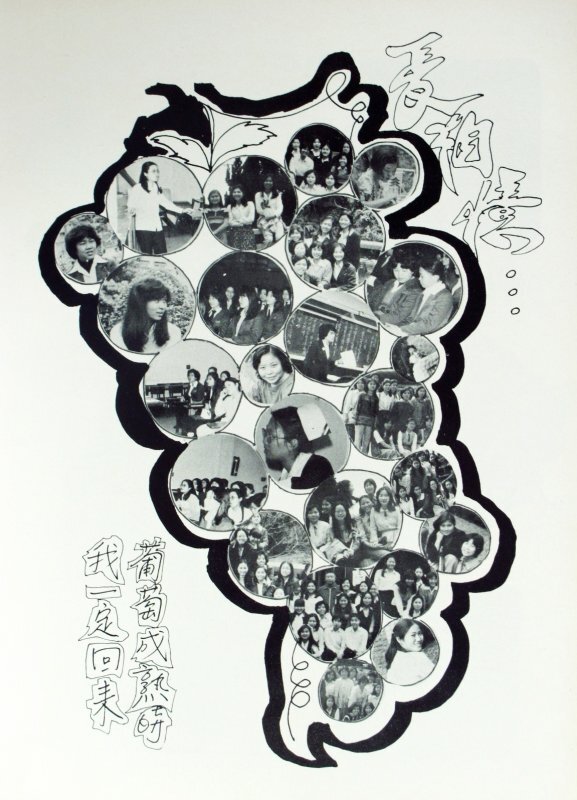 長相憶...
葡萄成熟時
我一定回來